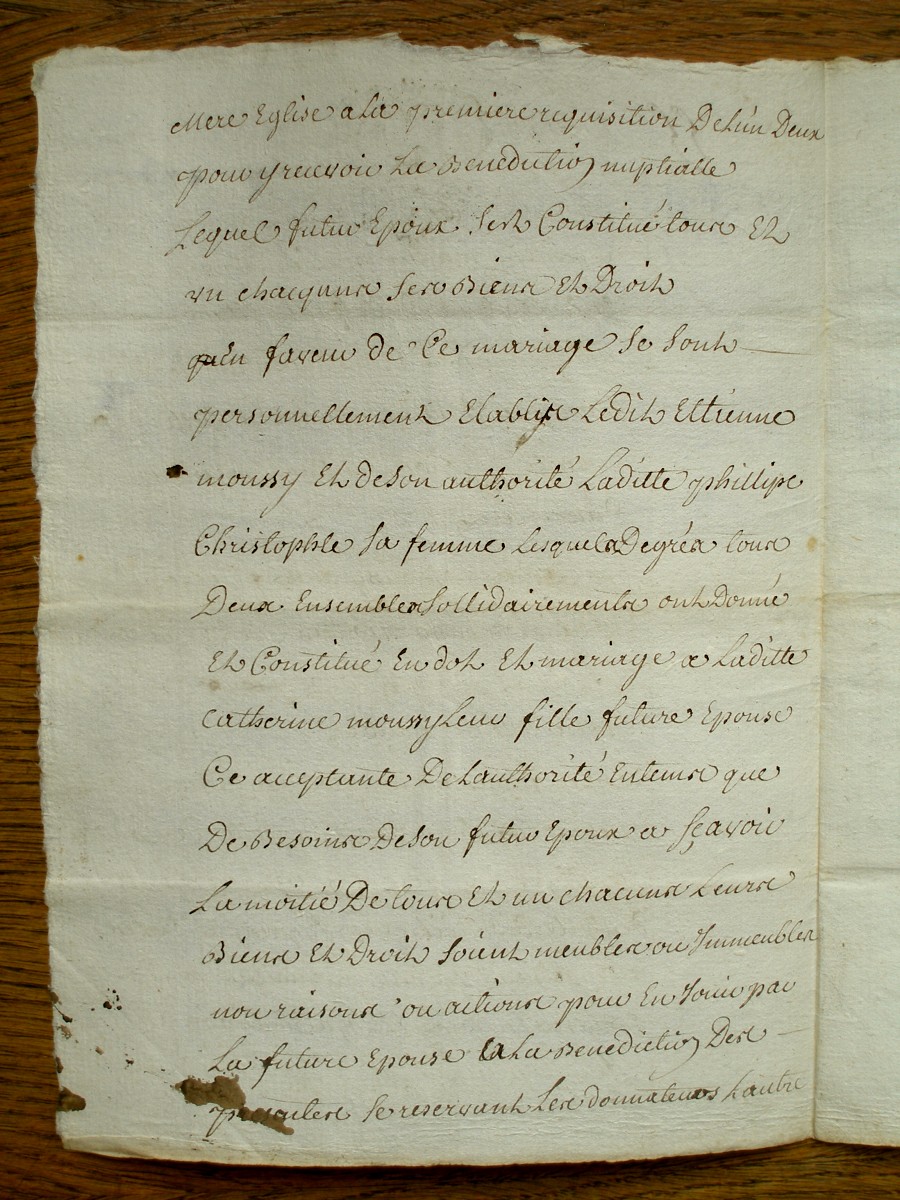 Mere Eglise a La premiere requisition De L'un Deux
pour y recevoir La Benediction nuptialle
Lequel futur Epoux Sest Constitué tous Et
un chacquuns Ses Biens Et Droit
qu'en faveur de Ce mariage Se Sont
personnellement Etablys Ledit Ettienne
moussy Et de Son authorité Laditte phillipe
Christophle Sa femme Lesquels De grés tous
Deux Ensembles Sollidairements ont Donné
Et Constitué En dot Et mariage a Laditte
Catherine moussy Leur fille future Epouse
Ce acceptante De Lauthorité En tems que
De Besoins De Son futur Epoux a Sçavoir
La moitié De tous Et un chacuns Leurs
Biens Et Droit Soient meubles ou Immeubles
non raisons ou actions pour En Jouir par
La future Epouse La Benediction Des
Se reservant Les donnateurs Lautre